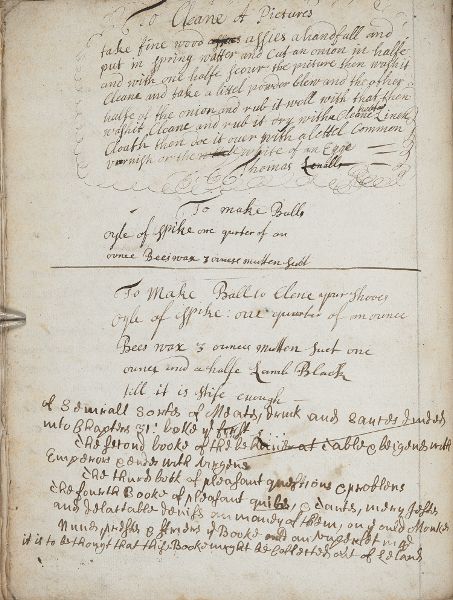 To Cleane A Pictures
take fine wood assies a handfull and
put in spring watter and Cut an onion in halfe
and with one halfe scour the picture then washit
Cleane and take a littel powder blew and the other
halfe of the onion and rub it well with that then
washit Cleane and rub it dry with a Cleane Linek
Cloath then doe it ouer with a littel Common
varnish or the white of an Egge
Thomas
To make Balls
oyle of spike one qurter of an
ounce Bees wax 3 ounces mutten suet
To Make Ball to Clene your Shooes
oyle of spike: one quarter of an ounce
Bees wax 3 ounces mutten suet one
ounce and a halfe Lamb Black
till it is stife enough
of Seuerall Sortes of Meates, drink and Sauces
into Chapters 31: booke y first
The second booke of the at table & beigenes with
Emperors & endes with
The third booke of pleasant questions & problems
The fourth Booke of pleasant & mery Jestes
and delattable on many of them, on y ould Monkes
Nunes, & y Booke and
it is to be thought that this Booke might be Collected out of Leland